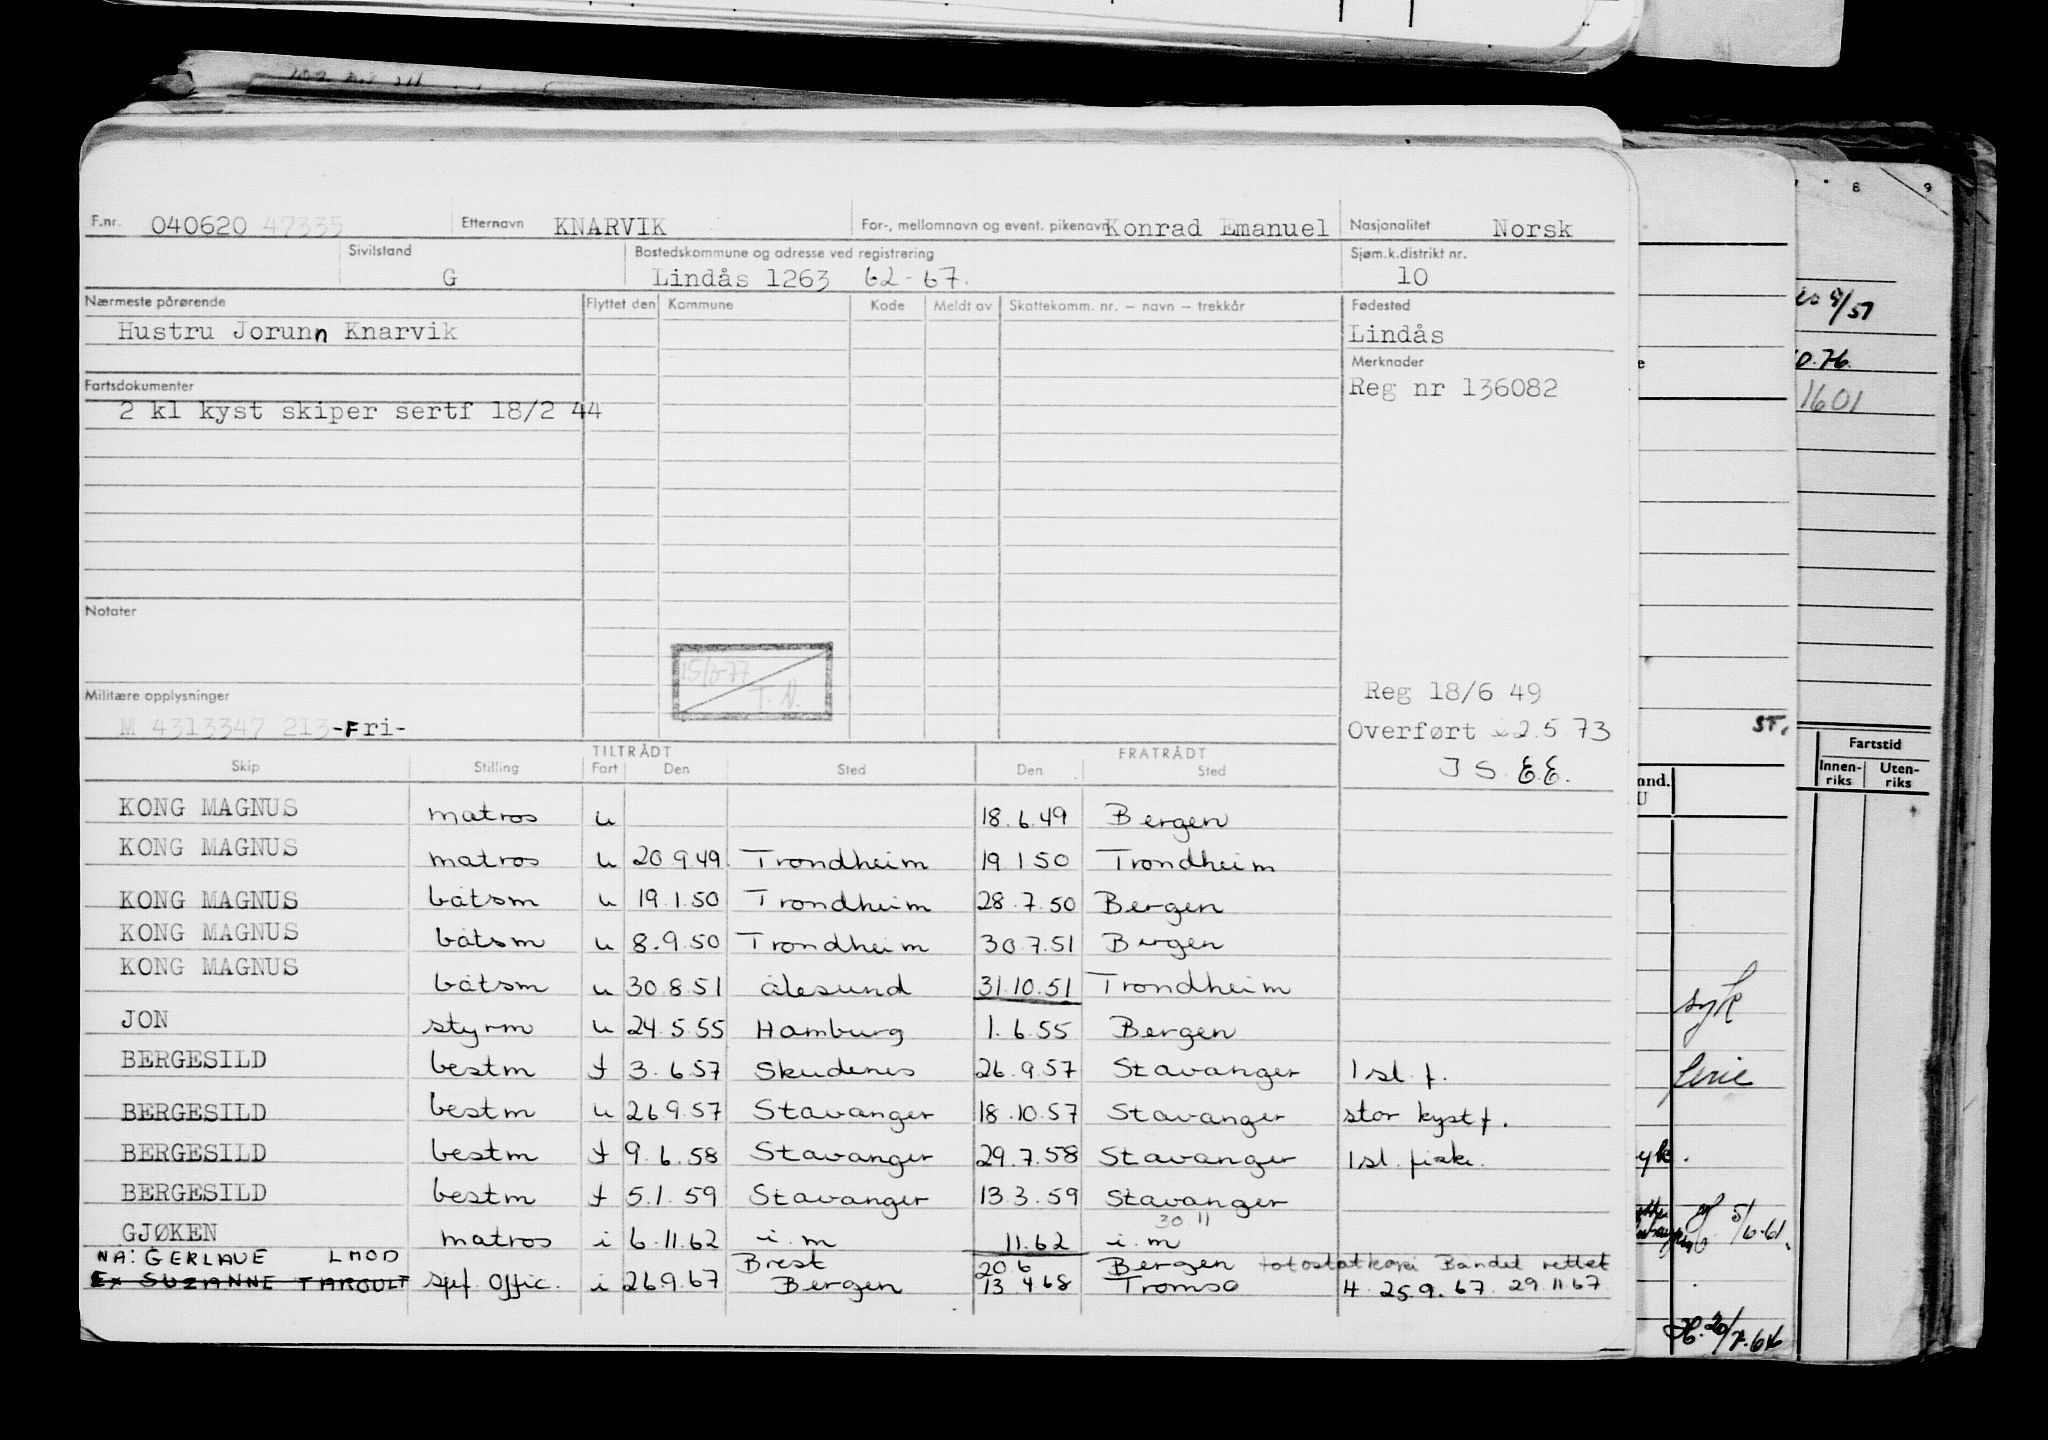 F.nr. 040620 47335 Etternavn KNARVIK For-, mellomnavn og event. pikenavn Konrad Emanuel Nasjonalitet Norsk
Sivilstand G Bostedskommune og adresse ved registrering Lindås 1263 62-67. Sjøm.k.distrikt nr. 10
Nærmeste pårørende Flyttet den Kommune Kode Meldt av Skattekomm. nr. – navn – trekkår Fødested
Hustru Jorunn Knarvik Lindås
Merknader
Fartsdokumenter Reg nr 136082
2 kl kyst skiper sertf 18/2 44
Notater
15/3-77
T. N.
Militære opplysninger Reg 18/6 49
M 4313347 213-Fri- Overført 22.5.73
J S. E.E.
TILTRÅDT FRATRÅDT
Skip Stilling Fart Den Sted Den Sted
KONG MAGNUS matros u 18.6.49 Bergen
KONG MAGNUS matros u 20.9.49. Trondheim 19.1.50 Trondheim
KONG MAGNUS båtsm u 19.1.50 Trondheim 28.7.50 Bergen
KONG MAGNUS båtsm u 8.9.50 Trondheim 30.7.51 Bergen
KONG MAGNUS båtsm u 30.8.51 Ålesund 31.10.51 Trondheim
JON styrm u 24.5.55 Hamburg 1.6.55 Bergen
BERGESILD bestm f 3.6.57 Skudenes 26.9.57 Stavanger Isl. f.
BERGESILD bestm u 26.9.57 Stavanger 18.10.57 Stavanger stor kyst f.
BERGESILD bestm f 9.6.58 Stavanger 29.7.58 Stavanger Isl. fiske.
BERGESILD bestm f 5.1.59 Stavanger 13.3.59 Stavanger
30.11
GJØKEN matros i 6.11.62 i.m 11.62 i.m
NA: GERLAUE LMOD Brest 20 6 Bergen fotostatkopi Båndet rettet
EX SUZANNE TARGULT spf. Offic. i 26.9.67 Bergen 13.4.68 Tromsø 4. 25.9.67. 29.11.67
8 9
5/51
0.76.
1601
ST.
Fartstid
Innen-
riks
Uten-
riks
and.
U
syk
ferie
yk.
5/6-61.
20/7.64